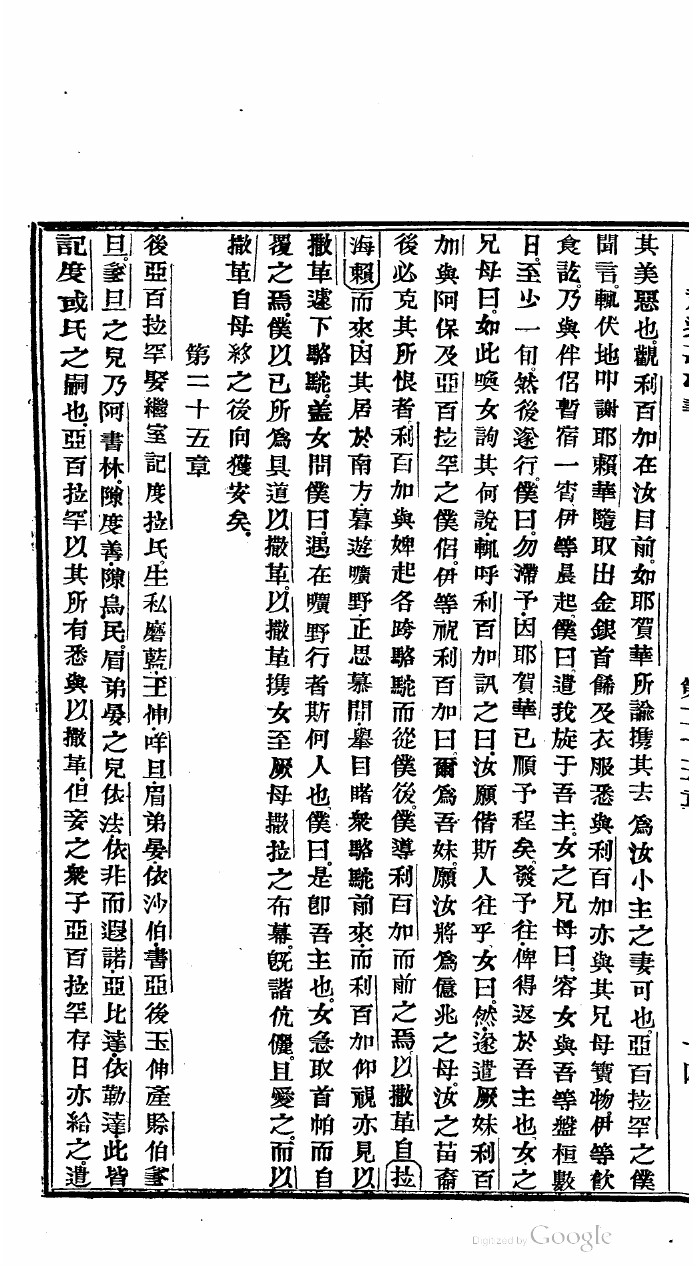 其美惡也。觀利百加在汝目前。如耶賀華所諭携其去爲汝小主之妻可也。亞百拉罕之僕
聞言。輒伏地叩謝耶賴華。隨取出金銀首餙及衣服悉與利百加亦與其兄母寶物。伊等飲
食訖。乃與伴侶暫宿一宵伊等晨起。僕曰。遣我旋于吾主。女之兄母曰。容女與吾等盤桓數
日。至少一旬。然後遂行。僕曰。勿滯予。因耶賀華已順予程矣。發予往。俾得返於吾主也。女之
兄母曰。如此喚女詢其何說。輒呼利百加訊之曰。汝願偕斯人往乎。女曰。然。遂遣厥妹利百
加與阿保及亞百拉罕之僕侶。伊等祝利百加曰。爾爲吾妹。願汝將爲億兆之母。汝之苗裔
後必克其所恨者利百加與婢起各跨駱駝而從僕後。僕導利百加而前之焉。以撒革自拉
海賴而來。因其居於南方。暮遊曠野正思慕間。舉目睹衆駱駝前來。而利百加仰視亦見以
撒革遽下駱駝。盖女問僕曰。遇在曠野行者斯何人也。僕曰。是卽吾主也。女急取首帕而自
覆之焉。僕以已所爲具道以撒革。以撒革携女至厥母撒拉之布幕。旣諧伉儷。且愛之。而以
撒革自母終之後向獲安矣。
第二十五章
後亞百拉罕娶繼室記度拉氏。生私磨藍。王伸。咩旦。眉弟晏。依沙伯。書亞後玉伸產賒伯爹
旦。爹旦之兒乃阿書林。隙度善。隙烏民。眉弟晏之兒依法。依非而遐諾亞比達。依勒達。此皆
記度或氏之嗣也。亞百拉罕以其所有悉與以撒革。但妾之衆子亞百拉罕存日亦給之。遣
Digitized by Google